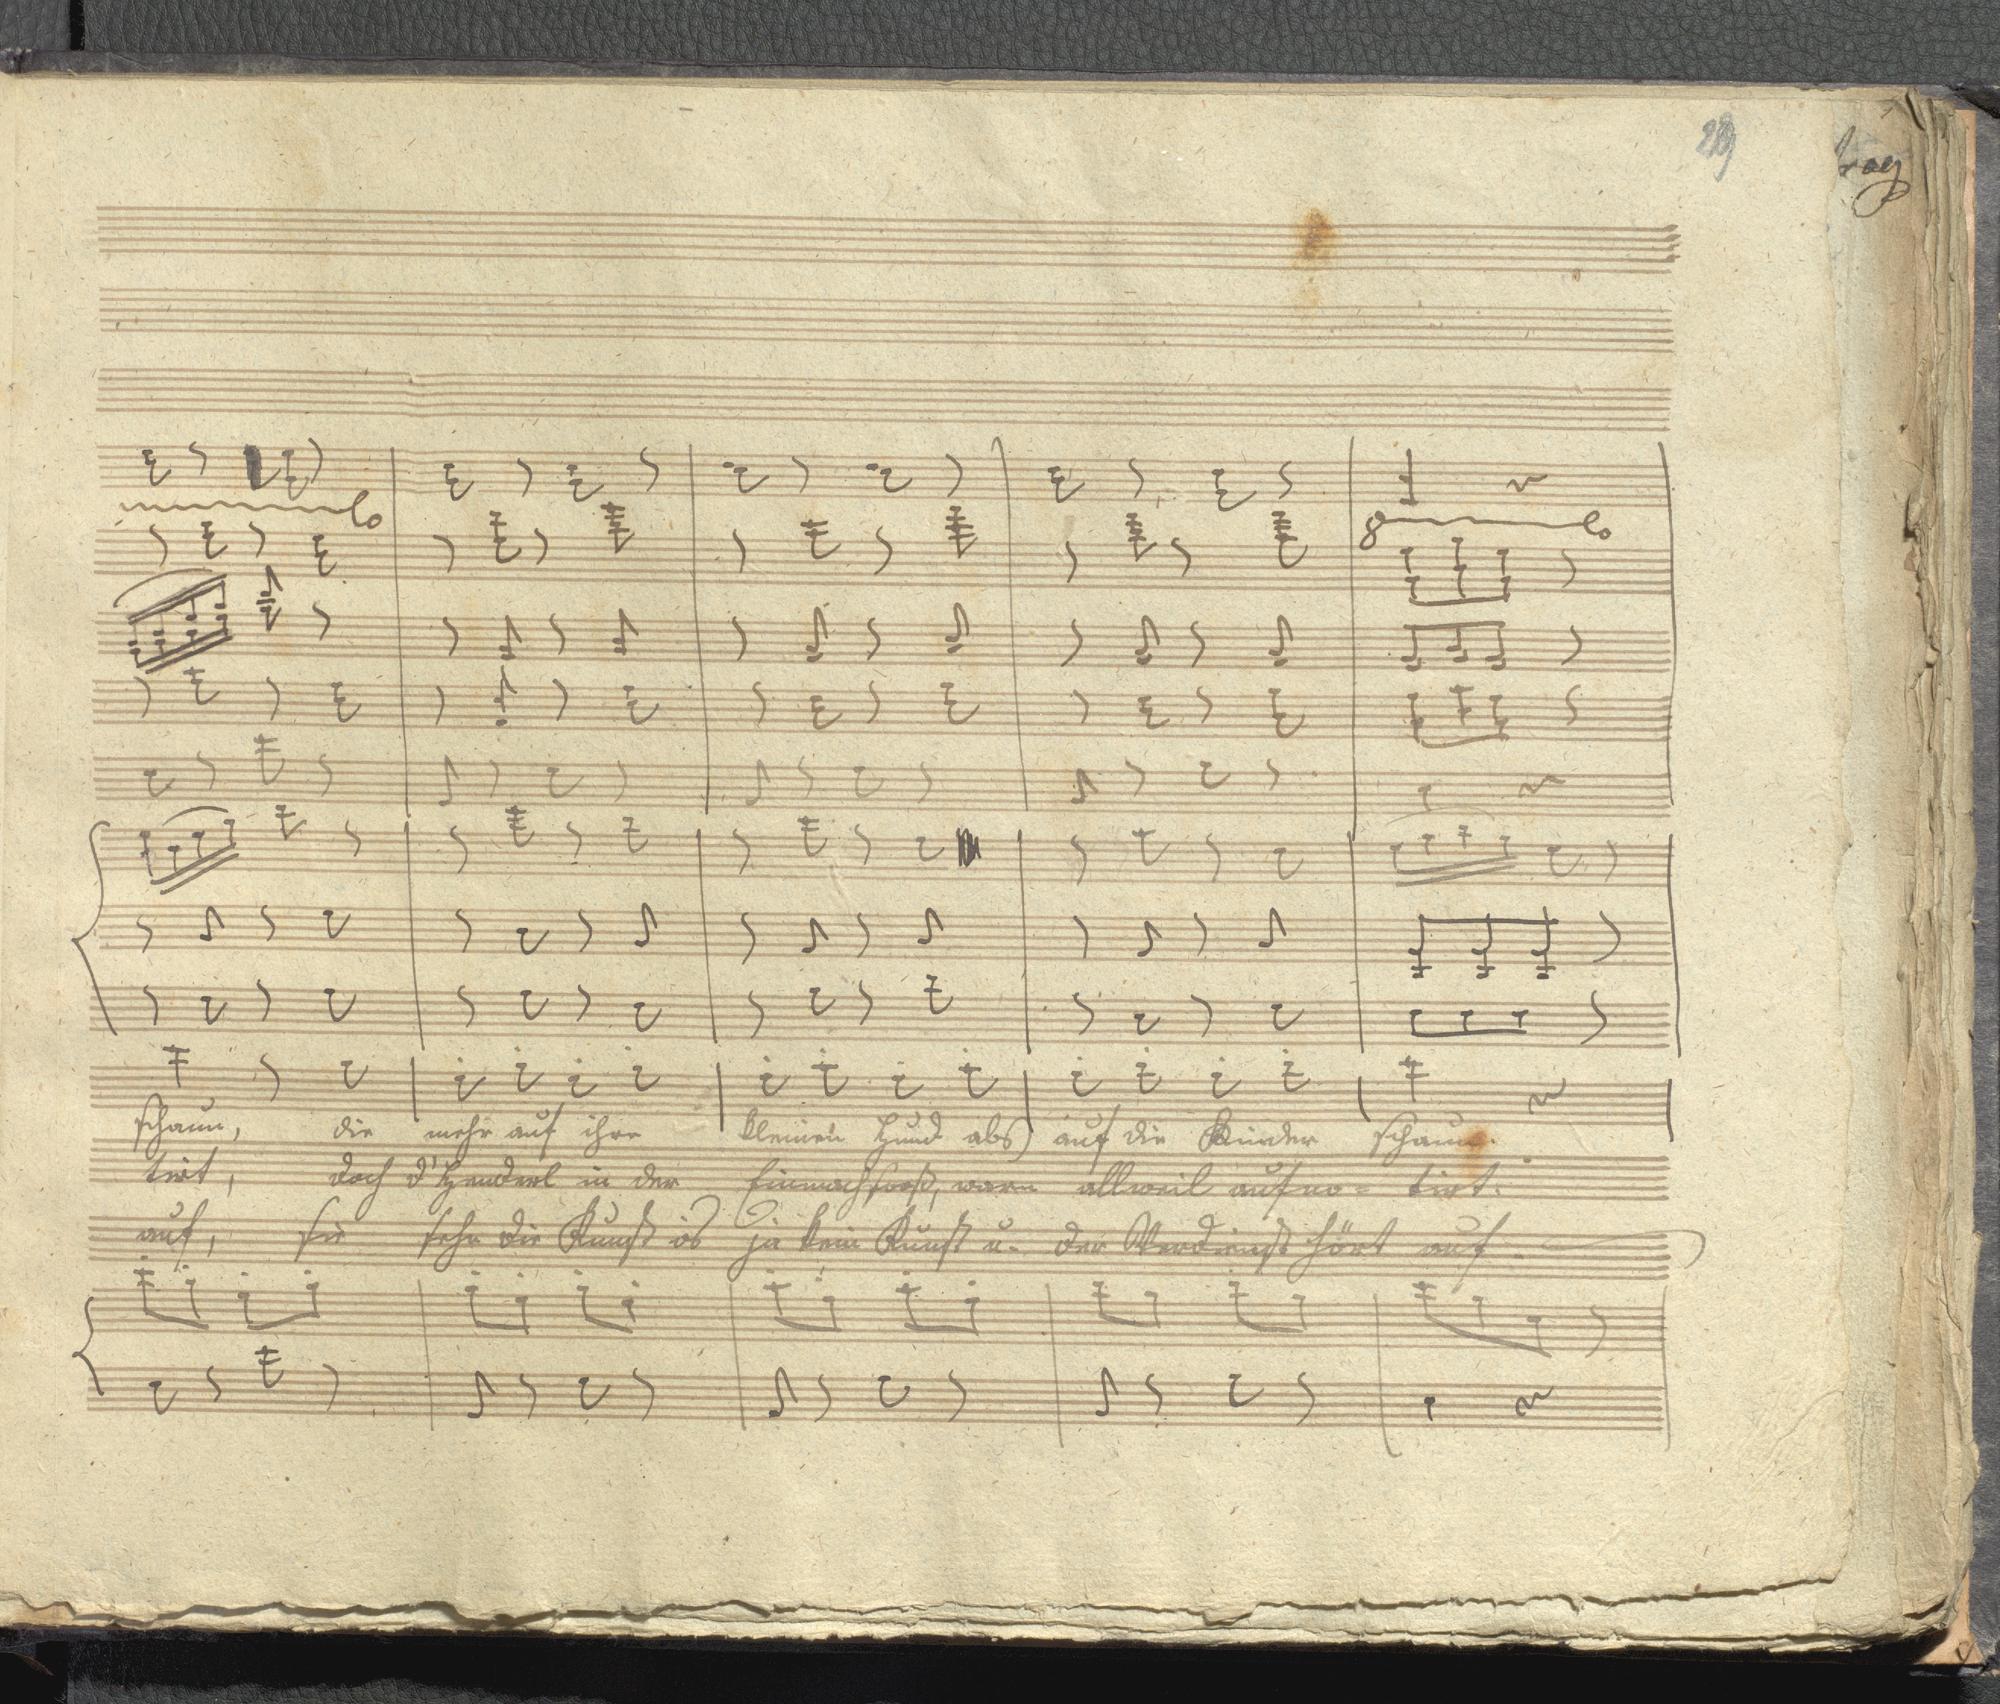 29
schaun, die mehr auf ihre kleinen Hund als auf die Kinder schaun.
tirt, doch d'Henderl in der Einmachsooß, warn allweil aufno= tirt.
auf, sie sehn die Kunst is ja kein Kunst u. der Verdienst hört auf